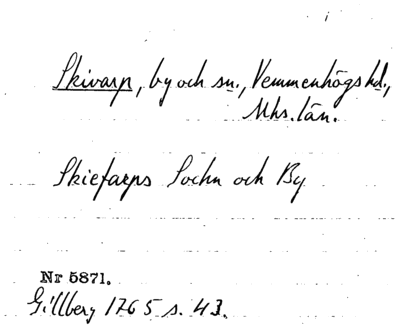 Skivarp, by och sn., Vemmenhögs hd.,
Mhs. län.
Skiefarps Sochn och By
Nr 5871.
Gillberg 1765 s. 43.